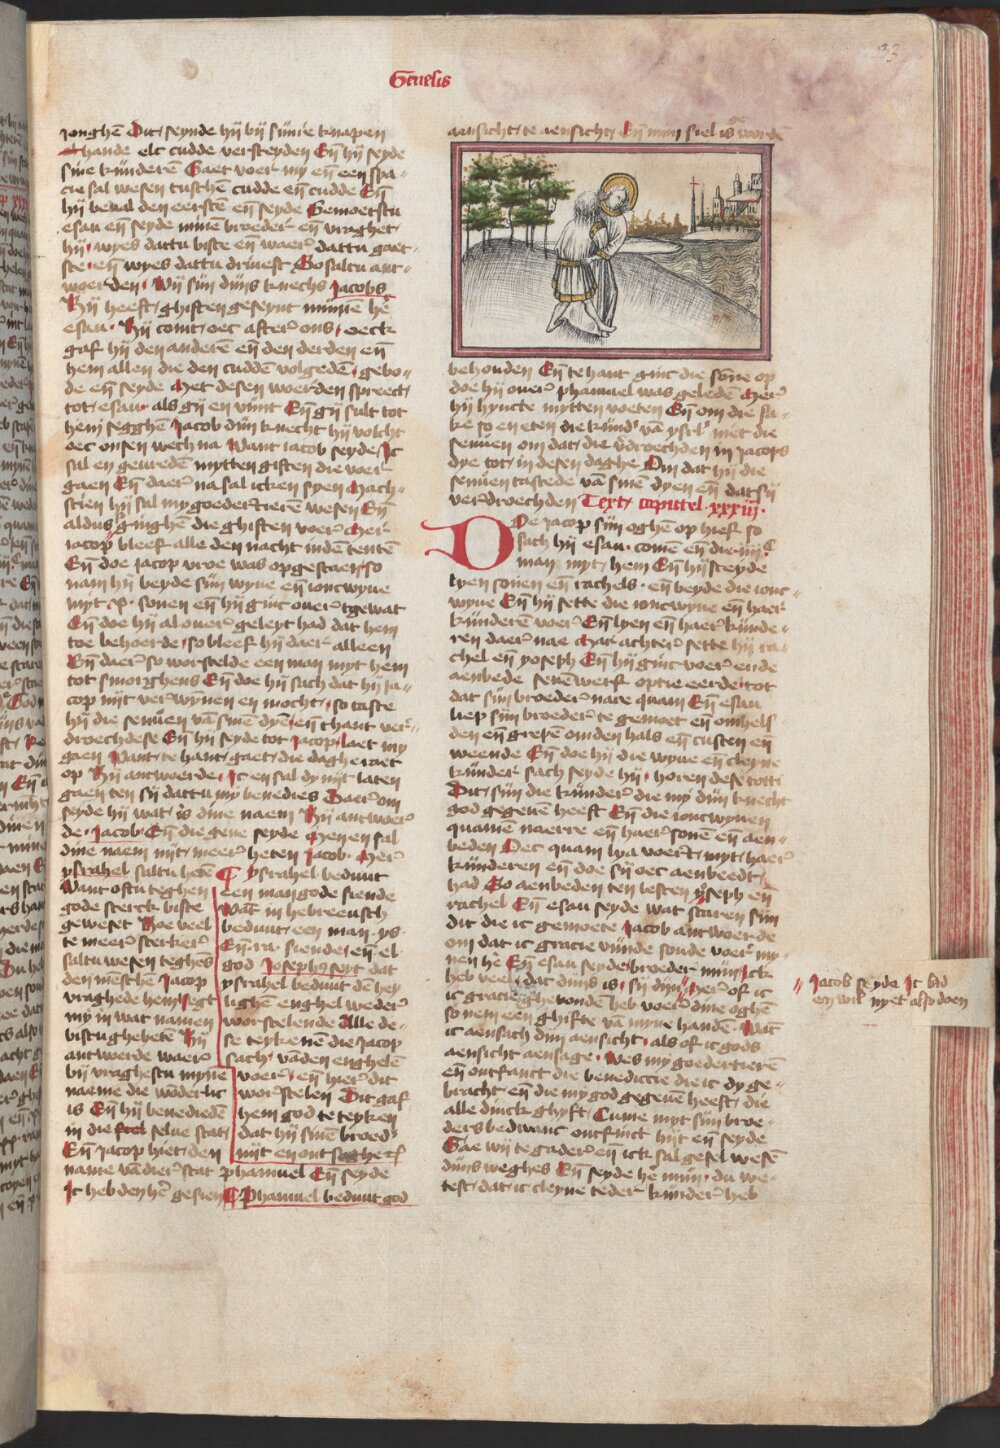 33
Genesis
jonghē Dit seynde hij bij sinre knapen
hande elc cudde versceyden Eñ hij seyde
sine kinderē Gaet voer my eñ een spa-
cie sal wesen tuschē cudde eñ cudde Eñ
hij beual den eerstē eñ seyde Gemoetstu
esau eñ seyde minē broeder eñ vraghet
hij wyes dattu biste eñ waer dattu gaet-
ste eñ wyes dattu driuest So saltu ant-
woerden Wij sijn dijns knechs Jacobs
Hij heeft ghiften geseynt minē hē
esau Hij comt oec after ons oeck
gaf hij den anderē eñ den derden eñ
hem allen die den cuddē volgedē gebo-
de eñ seyde Met desen woerden spreect
tot esau als gij en vint Eñ gij sult tot
hem segghē Jacob dijn knecht hij volcht
oec onsen wech na Want iacob seyde Ic
sal en geuredē mytten giften die voer
gaen Eñ daer na sal icken syen Mach-
schien hij sal my goedertierē wesen Eñ
aldus ginghē die ghiften voer Mer
iacop bleef alle den nacht indē tentē
Eñ doe jacop vroe was opgestaen so
nam hij beyde sijn wyue eñ ioncwyue
myt xi sonen eñ hij ginc ouer tgewat
Eñ doe hij al ouer geleyt had dat hem
toe behoerde so bleef hij daer alleen
Eñ daer so worstelde een man myt hem
tot smorghens Eñ doe hij sach dat hij ja-
cop nijt verwynen en mocht so taste
hij die senuen vā sinē dye eñ thant ver-
droechdese Eñ hij seyde tot Jacop laet my
gaen Want te hant gaet die daghe raet
op Hij antwoerde Ic en sal dy nijt laten
gaen ten sij dattu my benedies Daer om
seyde hij wat is dine naem Hij antwoer
de Jacob Eñ die gene seyde Men en sal
dine naem nijt meer heten Jacob Mer
ysrahel saltu hetē
Want ofstu teghen
gode sterck biste
geweset Hoe veel
te meer stercker
saltu wesen teghēs
den mēschē Jacop
vraghede hem segt
my in wat namen
bistu ghehetē Hij
antwerde waer
bij vraghestu myne
naeme die wōderlic
is Eñ hij benediedē
in die selue stat
Eñ Jacop hiet den
name vā dier stat phanuel Eñ seyde
Ic heb den hēr gesien
ysrahel beduut
een man gode siende
Wāt in hebreeusch
beduut een man ys
Eñ ra siende eñ el
god Josephus seyt dat
ysrahel beduut den hey
lighē enghel weder
worstelende Alle de-
se teykenē die Jacop
sach vā den enghelē
voer eñ hier dit
worstelen Dit gaf
hem god te teyken
dat hij sinē broed'
nijt en ontsaghe
Phanuel beduut god
aensicht te aensicht Eñ mijn siel is worde
behouden Eñ te hant ginc die sōne op
doe hij ouer phanuel was geledē Mer
hij hyncte mytten voeten Eñ om die sa-
ke so en eten die kind' vā ysrl' niet die
senuen om dat die v'droechden in Jacops
dye tot in desen daghe Om dat hij die
senuen tastede vā sinē dyen eñ dat sij
verdroechden Text capittel xxxiij
Doe jacop sijn oghē op hief so
sach hij esau comē eñ die iiijc
man myt hem Eñ hij screyde
lyen sonen eñ rachels eñ beyde die ionc-
wyue Eñ hij sette die ioncwyue eñ haer
kinderē voer Eñ lyen eñ haer kinde-
ren daer nae Mar achter sette hij ra-
chel eñ yoseph Eñ hij ginc voer ende
aenbede seuēwerf op tie eerde tot
dat sijn broeder nare quam Eñ esau
liep sijn broeder te gemoet eñ omhels-
den eñ grepē om den hals eñ custen eñ
weende Eñ doe hij die wyue eñ cleyne
kinder sach seyde hij horen dese totti
Dit sijn die kinder die my dijn knecht
god gegeuē heeft Eñ die ioncwyuen
quamē naerre eñ haer sonē eñ aen-
beden Oec quam lya voert myt haer
kinderen eñ doe sij oec aenbeedt
had So aenbeden ten lesten yoseph eñ
rachel Eñ esau seyde wat scaren sijn
dit die ic gemoete Jacob antwoerde
om dat ic gracie vinde soude voer my-
nen hē Eñ esau seyde broeder mijn Ick
heb veel dat dijns is sij dijn Mer of ic
ic gracie ghevonden heb voer dine oghē
so nem een ghifte vā myne handē Wāt
ic aensach dijn aensicht als of ic gods
aensicht aensage Wes my goedertieren
eñ ontfanct die benedictie die ic dy ge-
bracht eñ die my god gegeuē heeft die
alle dinck ghyft Cume myt sijn broe-
ders bedwanc ontfinct hijt eñ seyde
Gae wij te gader eñ ick sal gesel wesē
dijns weghes Eñ seyde hē mijn du we-
test dat ic cleyne teder kinder heb
Jacob seyde Ic bid
en wil nyet also doen